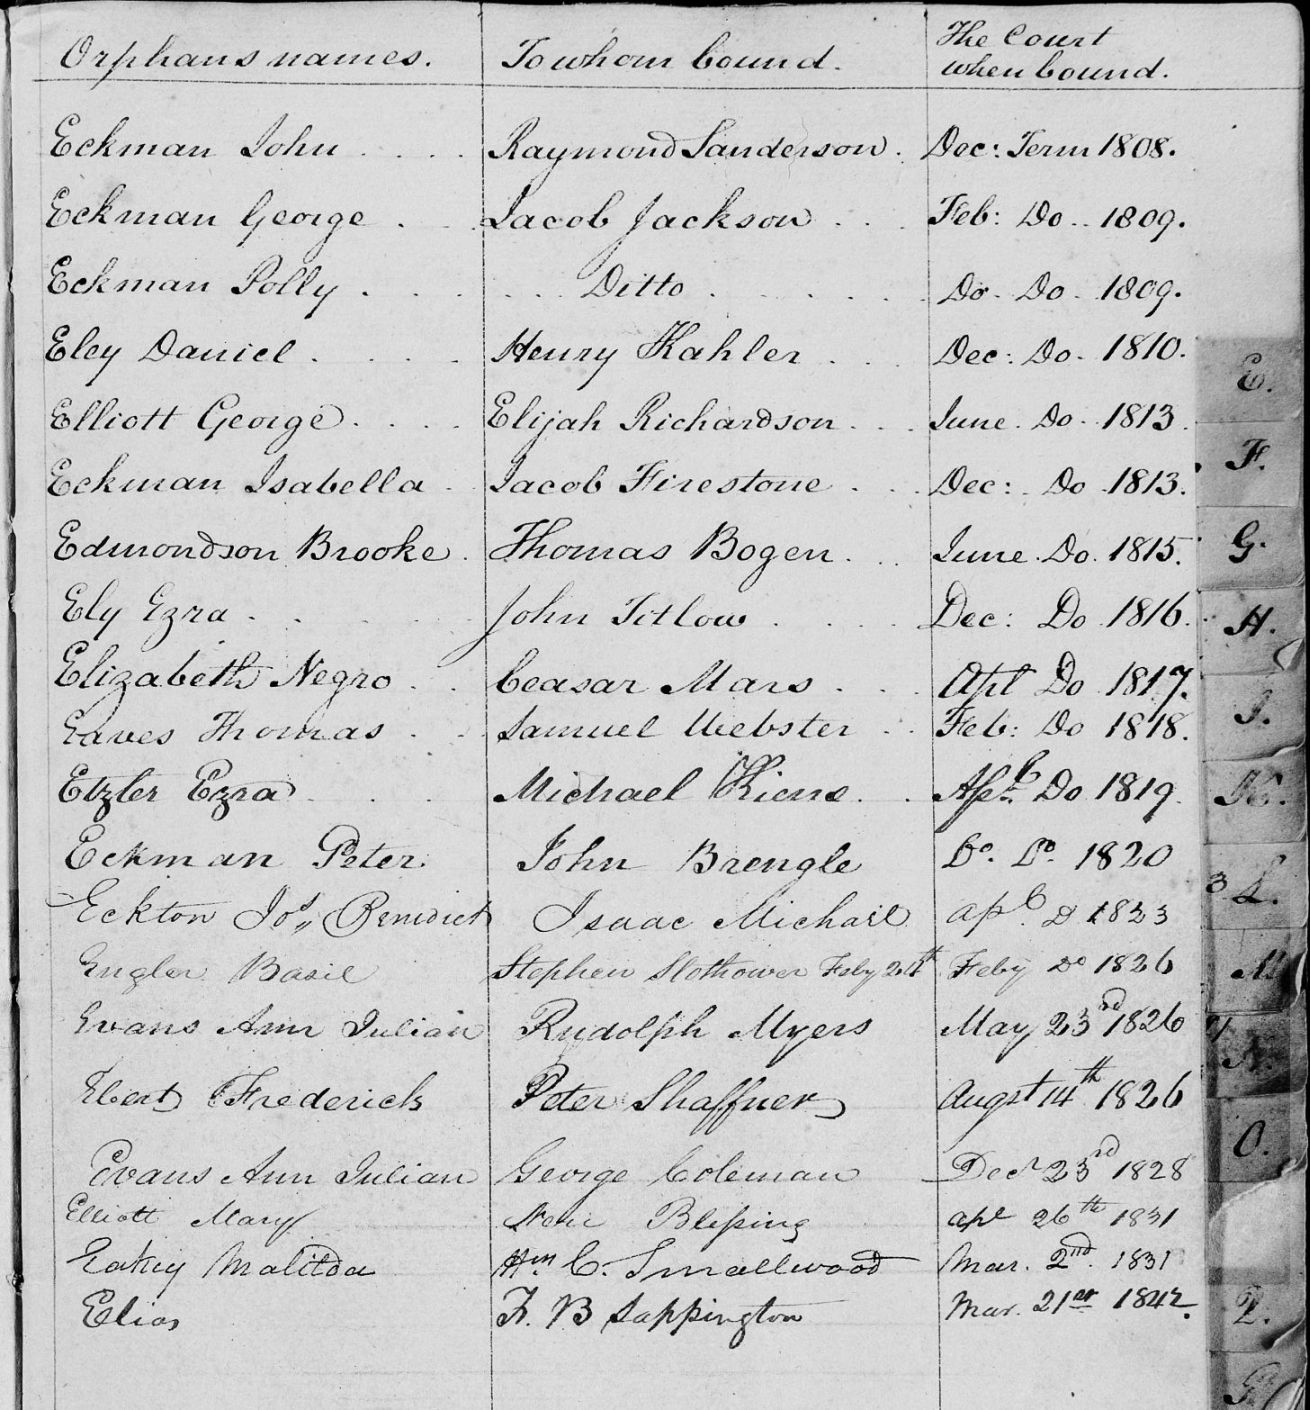 Orphans names. To whom bound. The Court
when bound.
Eckman John Raymond Sanderson. Dec: Term 1808.
Eckman George Jacob Jackson Feb: Do 1809.
Eckman Polly Ditto Do. Do. 1809.
Eley Daniel Henry Kahler Dec: Do. 1810.
Elliott George Elijah Richardson June Do. 1813
Eckman Isabella Jacob Firestone Dec: Do 1813.
Edmondson Brooke Thomas Bogen June Do. 1815.
Ely Ezra John Titlow Dec: Do 1816.
Elizabeth Negro Ceasar Mars Apl Do 1817.
Eaves Thomas Samuel Webster Feb: Do 1818.
Etzler Ezra Michael Kiens Apl Do 1819
Eckman Peter John Brengle Do. Do. 1820
Eckton Jos. Benedict Isaac Michael apl D 1823
Engler Basil Stephen Slothower Feby 24th Feby Do 1826
Evans Ann Julian Rudolph Myers May 23rd 1826
Ebert Frederick Peter Shaffner Augst 14th 1826
Evans Ann Julian George Coleman Decr 23rd 1828
Elliott Mary Blessing apl 26th 1831
Matilda C. Smallwood Mar. 2nd. 1831
Elias F. B Sappington Mar. 21st 1842
E.
F.
G.
H.
I.
K.
3 L.
M
N.
O.